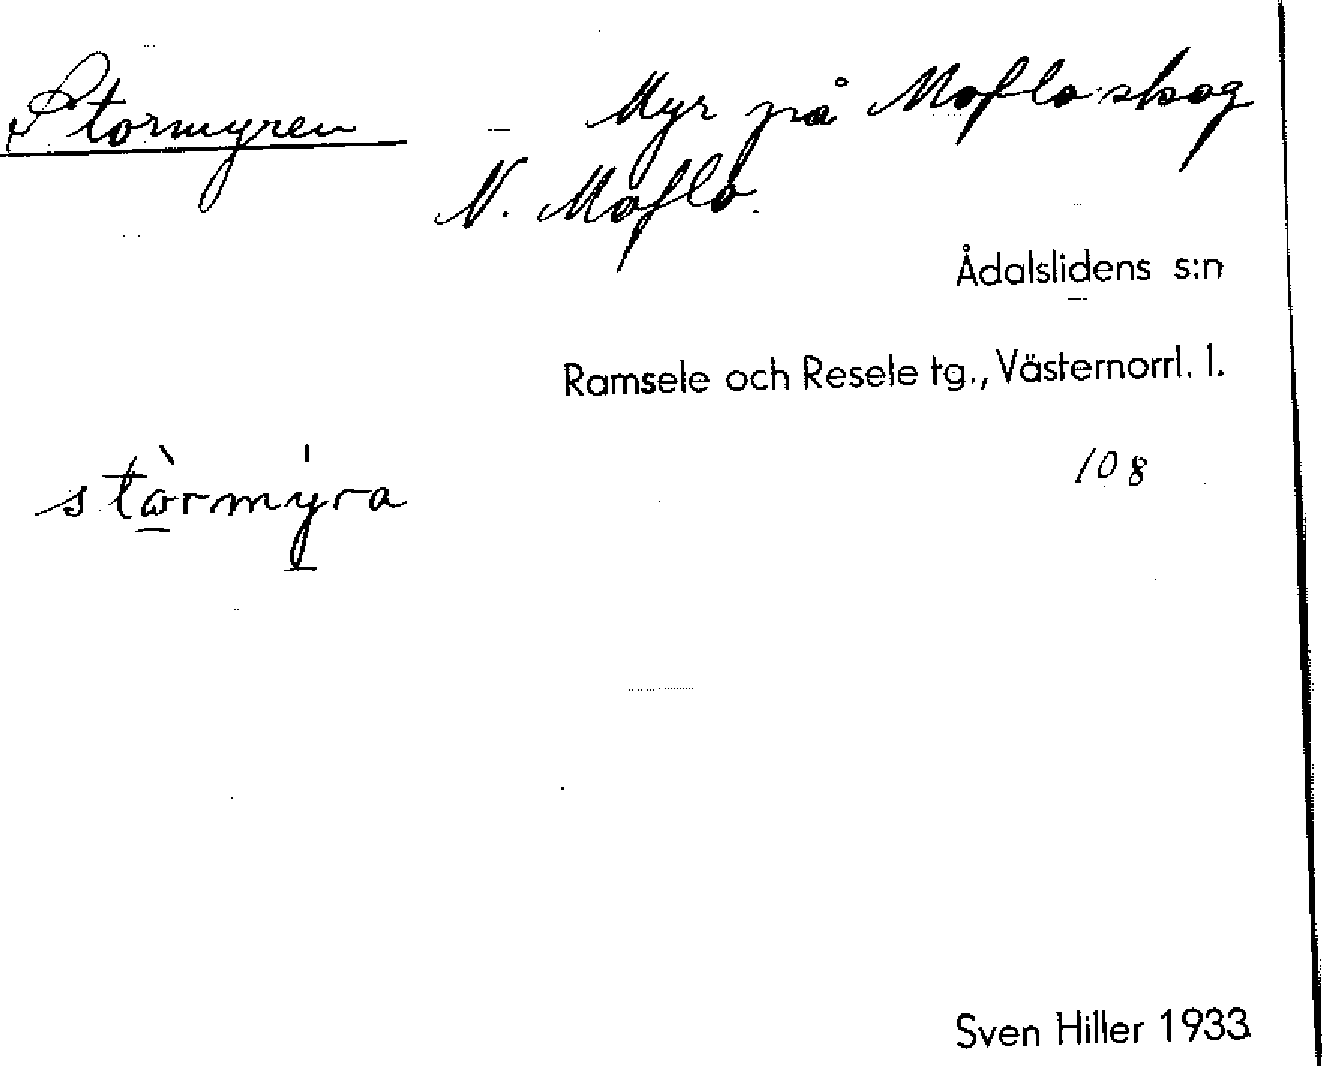 Stormyren – Myr på Mofloskog
N. Moflo.
Ådalslidens s:n
Ramsele och Resele tg., Västernorrl. l.
108
stòrmýra
Sven Hiller 1933